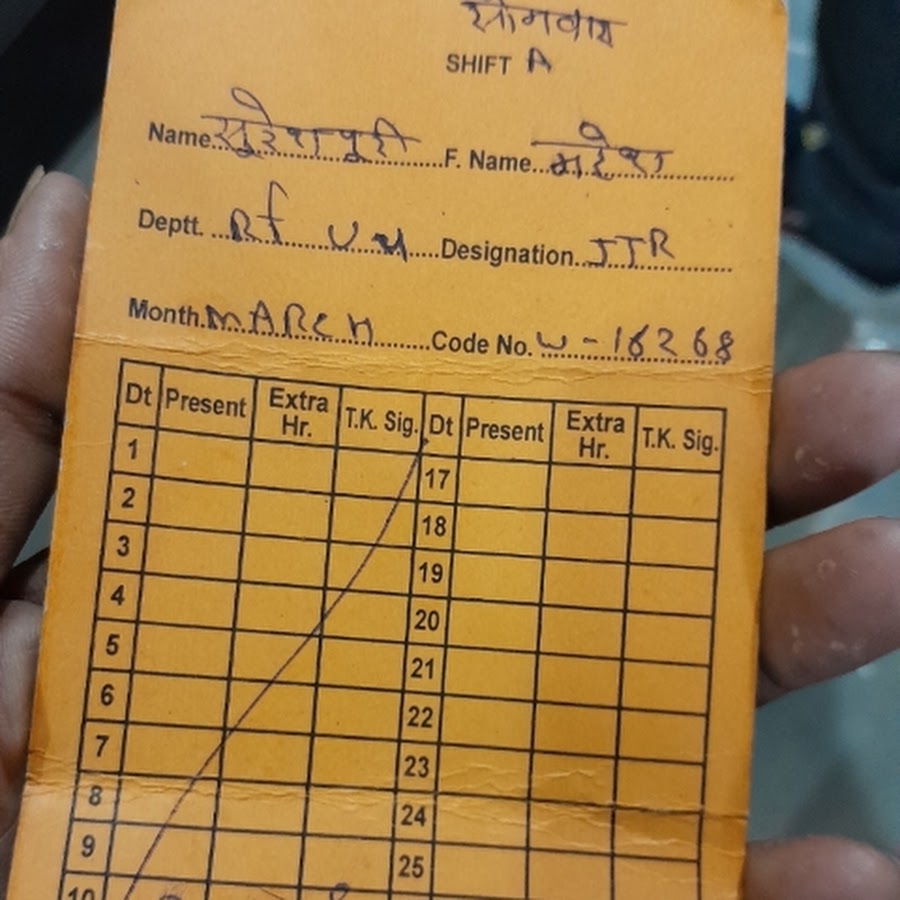 सोमवार
SHIFT A
Name सुरेश पूरी F. Name महेश
Deptt. Designation JTR
Month MARCH Code No. W-16268
Dt Present Extra Hr. T.K. Sig. Dt Present Extra Hr. T.K. Sig.
1 17
2 18
3 19
4 20
5 21
6 22
7 23
8 24
9 25
10